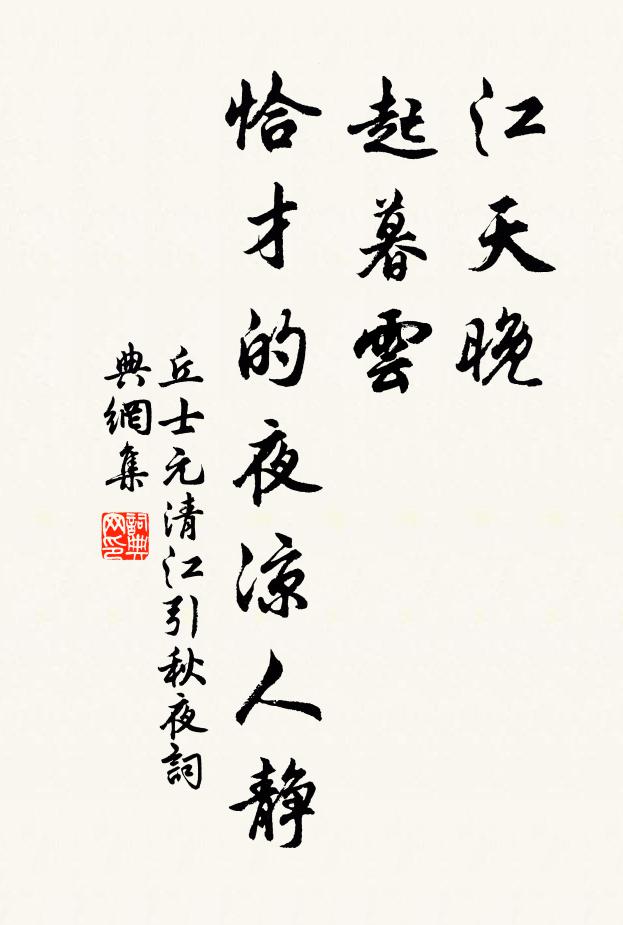 江天晚
起暮雲
恰才的夜涼人靜
丘士元清江引秋夜詞
典網集
詞典网印